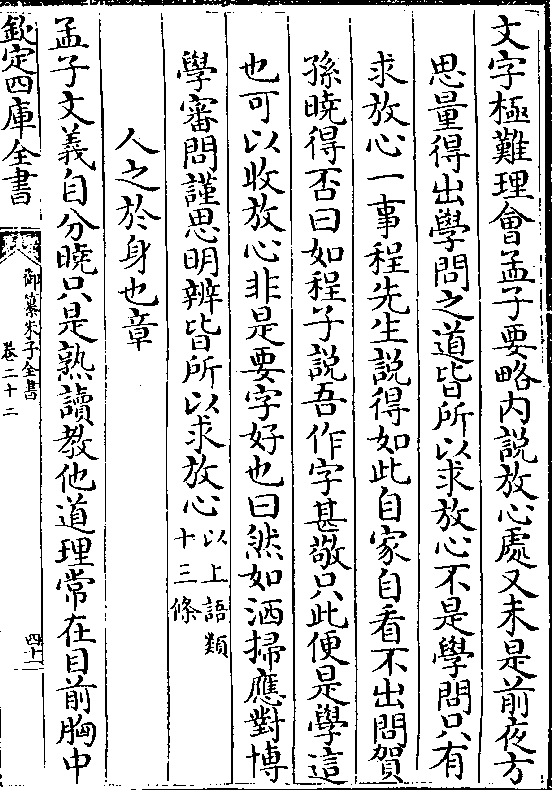 文字極難理會孟子要略内説放心處又未是前夜方
思量得出學問之道皆所以求放心不是學問只有
求放心一事程先生説得如此自家自看不出問賀
孫曉得否曰如程子説吾作字甚敬只此便是學這
也可以收放心非是要字好也曰然如洒掃應對博
學審問謹思明辨皆所以求放心以上語類
十三條
人之於身也章
孟子文義自分曉只是熟讀教他道理常在目前胸中
欽定四庫全書
御纂朱子全書
卷二十二
四十一